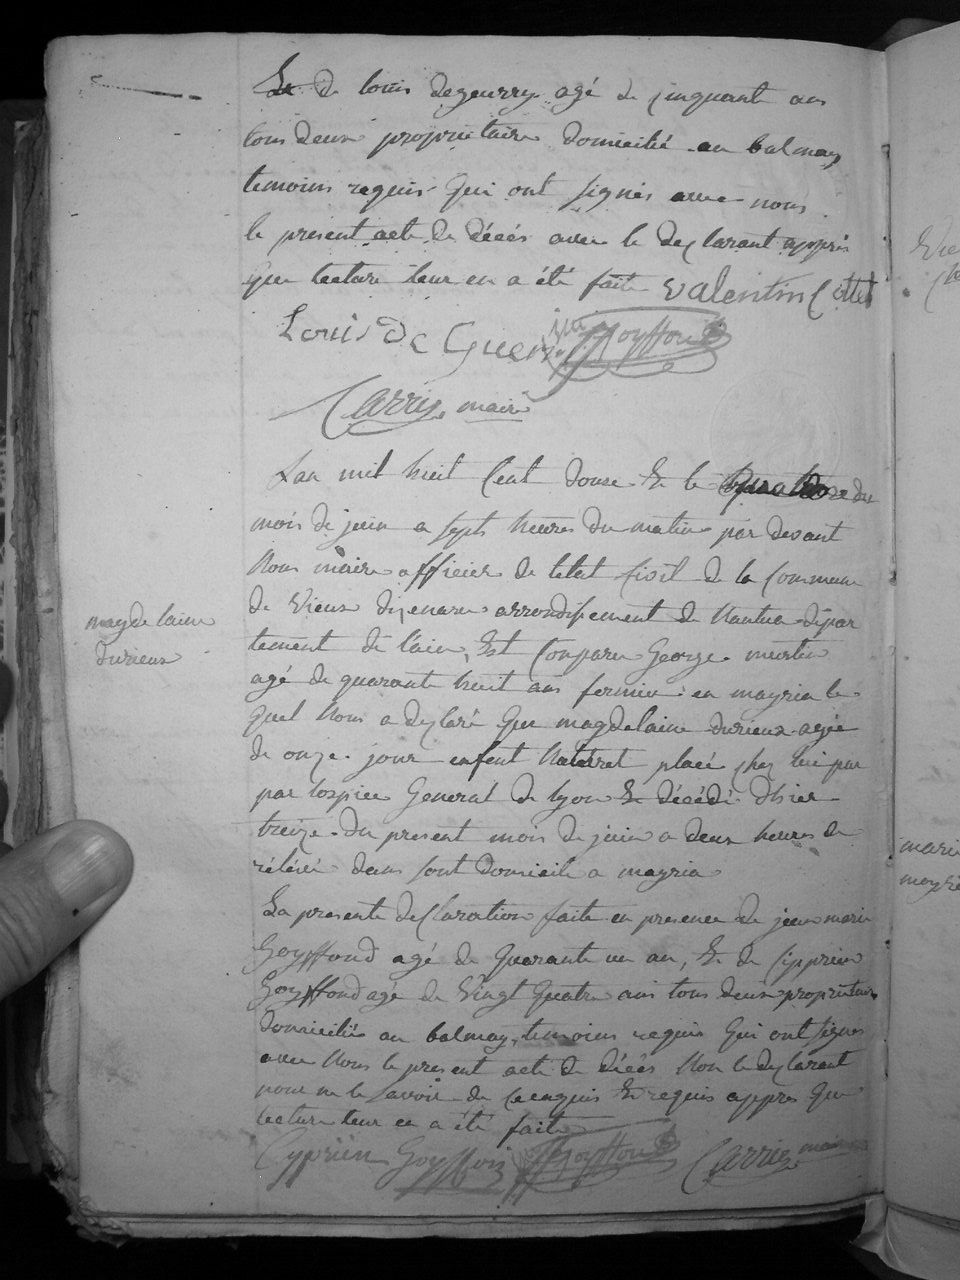 Et de louis degeurry agé de cinquante ans
tous deux proprietaire domicilié au balmay
temoins requis qui ont signés avec nous
le present acte de décés avec le declarant appres
que lecture leur en a été faite valentin Cottet
Louis De Guerry jm Goyffond
Carrier maire
Lan mil huit Cent douze Et le quatorze du
mois de juin a sept heures du matin par devant
Nous maire officier de letat Civil de la Commune
de Vieux dizenave arrondissement de Nantua depar
magdelaine
tement de l'ain, Est Comparu George mertin
durieux
agé de quarante huit ans fermier en mayria le
quel Nous a declaré que magdelaine durieux agée
de onze jour enfent Naturel placé chez lui par
par lospice General de lyon Et décédé dhier
treize du present mois de juin a deux heures de
rélévé dans sont domicile a mayria
La presente declaration faite en presence de jean marie
Goyffond agé de quarante un an, Et de Cipprien
Goyffond agé de vingt quatre ans tous deux proprietaires
domicilié au balmay, temoins requis qui ont signes
avec Nous le present acte de décés Non le declarant
pour ne le savoir de ce enquis Et requis appres que
lecture leur en a été faite
Cyprien Goyffon jm Goyffond Carrier maire